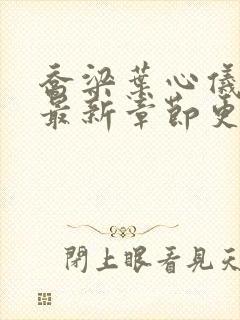 乔梁葉心儀
最新章節更
閉上眼看見天